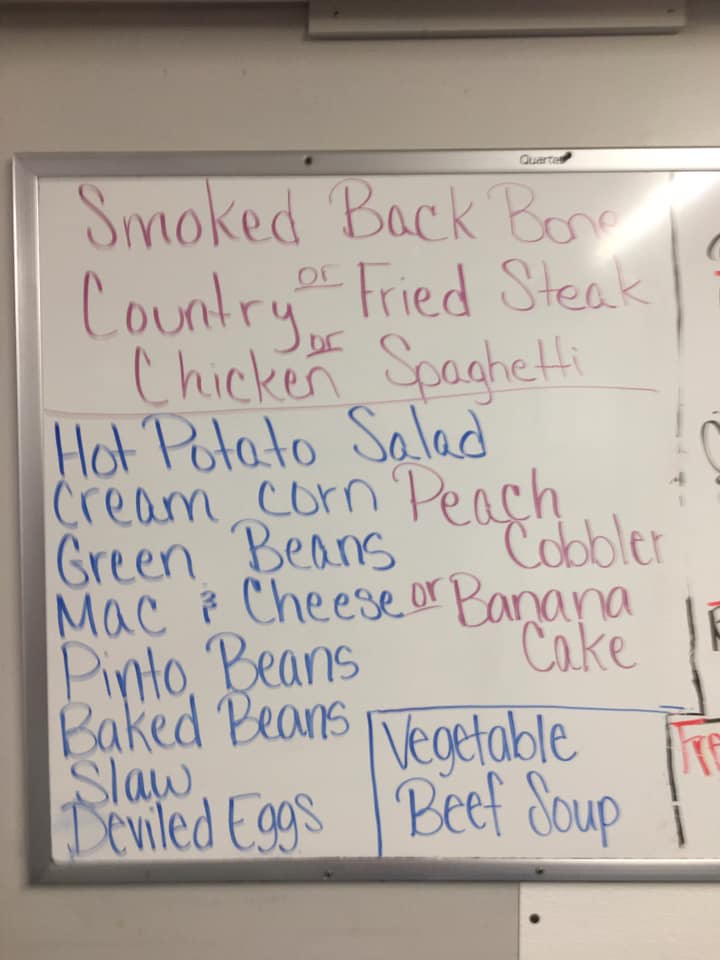 Quartet
Smoked Back Bone
or
Country Fried Steak
or
Chicken Spaghetti
Hot Potato Salad
Cream corn
Green Beans
Mac & Cheese
Pinto Beans
Baked Beans
Slaw
Deviled Eggs
Peach
Cobbler
or Banana
Cake
Vegetable
Beef Soup